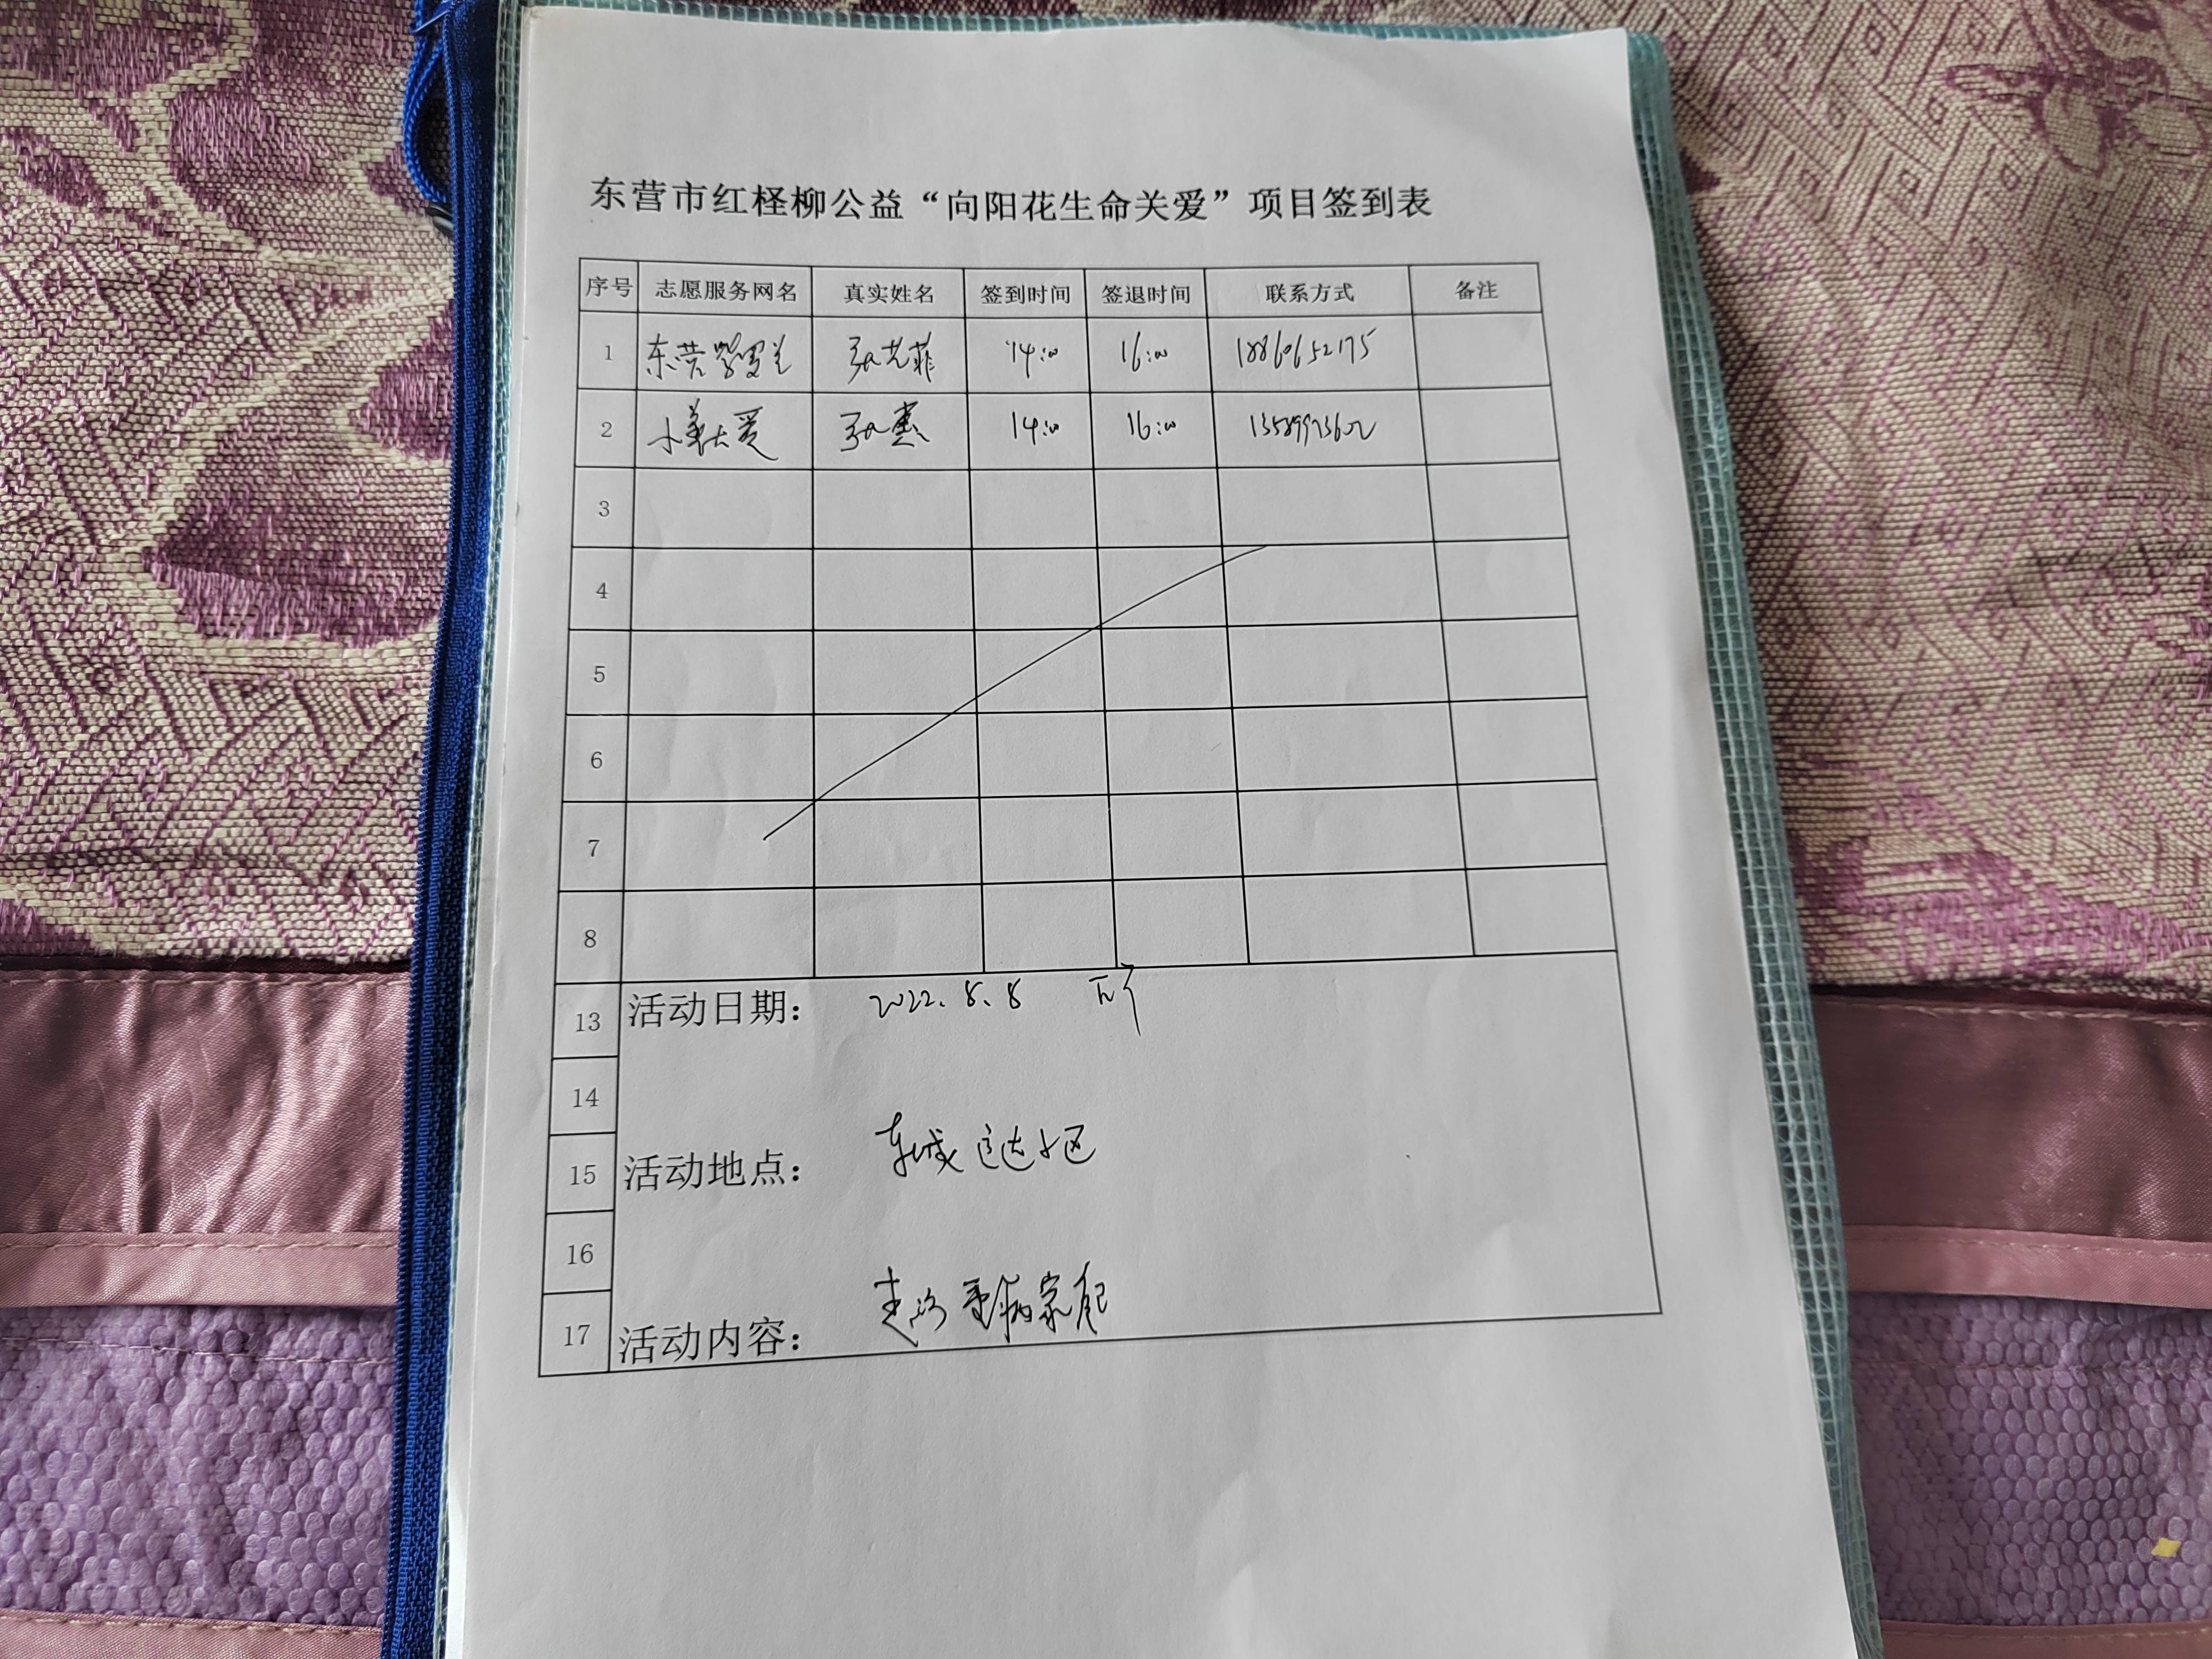 东营市红柽柳公益“向阳花生命关爱”项目签到表
序号 志愿服务网名 真实姓名 签到时间 签退时间 联系方式 备注
1 东营紫罗兰 张艺菲 14:00 16:00 18860652175
2 小美大爱 张惠 14:00 16:00
3
4
5
6
7
8
13 活动日期： 2022.8.8 下午
14
15 活动地点： 东城 小区
16
17 活动内容： 走访重病家庭